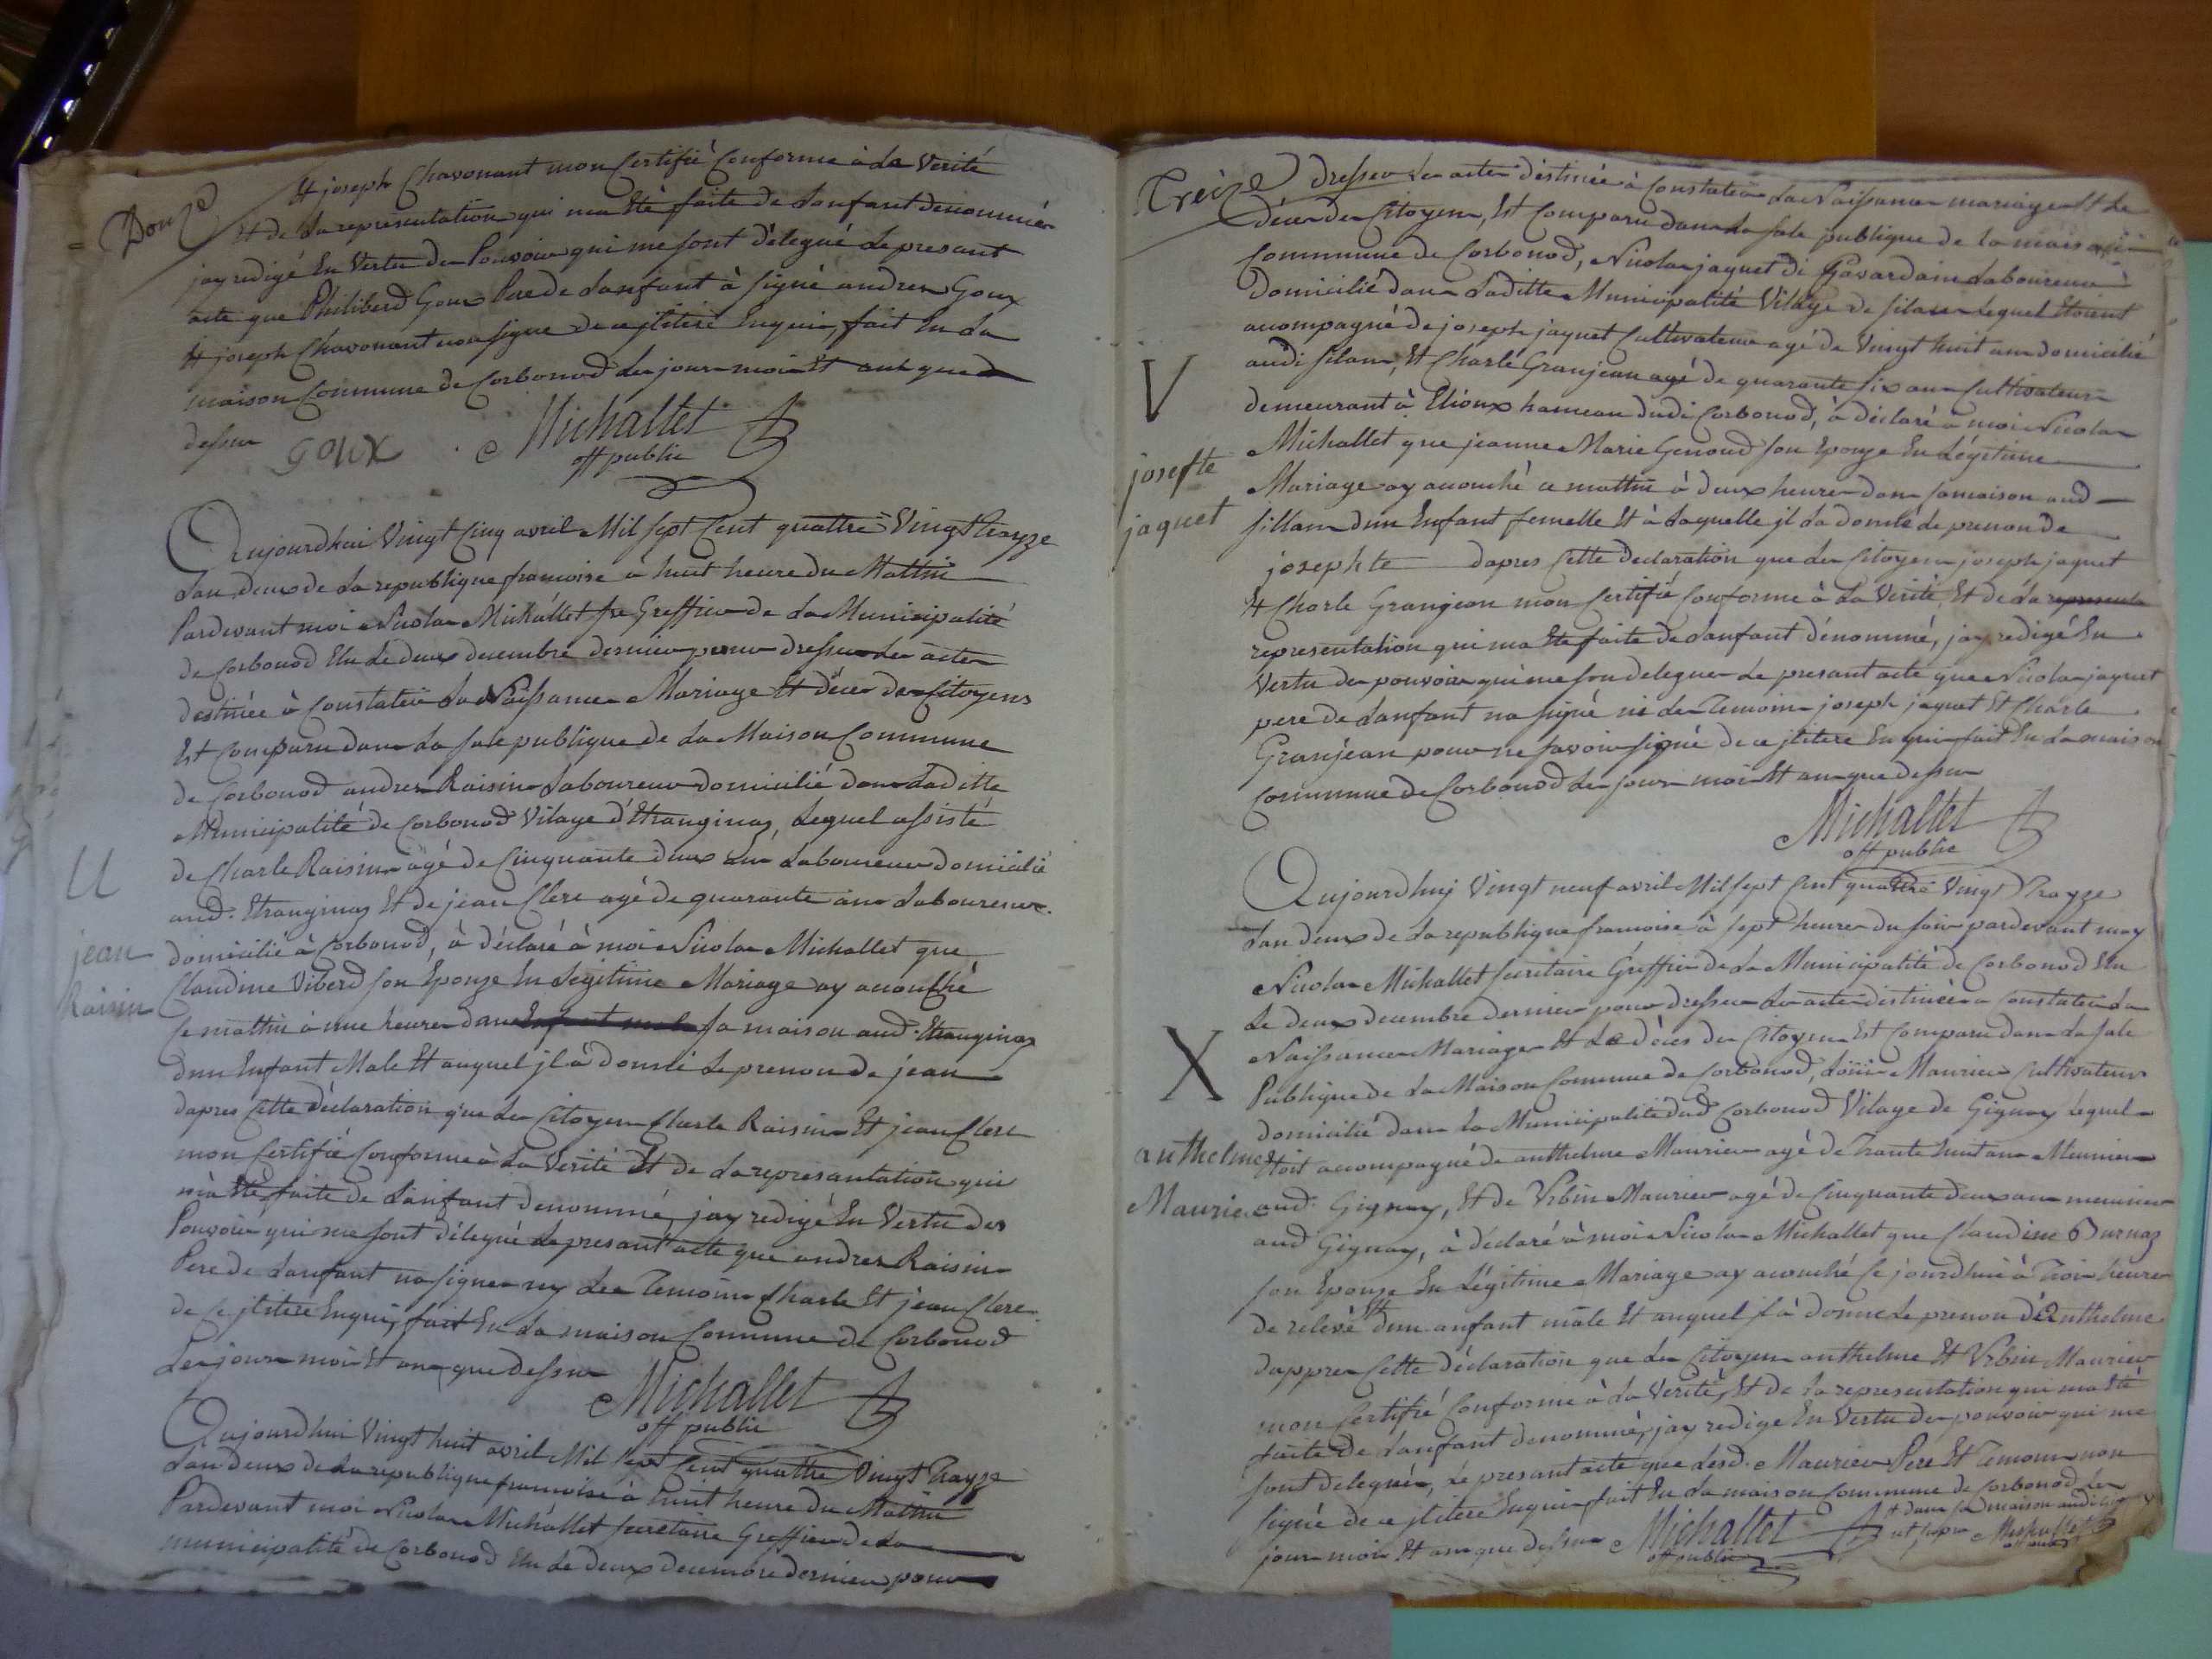 Donze
Et joseph Chavonant mon Certifié Conforme à La Verité
Et de La representation qui ma Eté faite de Lanfant denommée
jay redigé En Vertu de Pouvoir qui me font délegué Le presant
acte que Philiberd Goux Pere de Lanfant à signé andrer Goux
Et joseph Chavonant non signe de ce jlitéré Enquir, fait En La
maison Commune de Corbonod Les jour moi Et ant que
dessu
goux
Michallet
off public
Aujourdhui Vingt Cinq avril Mil sept Cent quattre Vingt Trayze
Lan deux de La republique francoise à huit heure du Mattin
Pardevant moi Nicolas Michallet sre Greffier de La Municipalité
de Corbonod Elu Le deux decembre dernier pour dresser Les actes
destinée à Constater La Naissance Mariage Et décer des Citoyens
Est Comparu dans La sale publique de La Maison Commune
de Corbonod andrer Raisin Laboureur domicilié dans Laditte
Municipalité de Corbonod Vilage d'Etranginaz, Lequel assisté
de Charle Raisin agé de Cinquante deux an Laboureur domicilié
aud. Etranginaz Et de jean Clerc agé de quarante ans Laboureur
domicilié à Corbonod, à déclaré à moi Nicolas Michallet que
Claudine Viberd son Epouze En Legitime Mariage ay acouché
Ce mattin à une heure dans Enfant male sa maison aud. Etranginaz
dun Enfant Male Et auquel jl à donné Le prenon de jean
dapres Cette déclaration que Les Citoyen Charle Raisin Et jean Clerc
mon Certifié Conforme à La Verité Et de La represantation qui
mà Eté faite de Lanfant denommé, jay redigé En Vertu des
Pouvoir qui me sont délegué Le presant acte que andrer Raisin
Pere de Lanfant na signer ny Les Temoins Charle Et jean Clerc
de Ce jliteré Enqui, fait En La maison Commune de Corbonod
Les jour moi Et an que dessu
Michallet
off public
U
jean
Raisin
Aujourdhui Vingt huit avril Mil sept Cent quattre Vingt Trayze
Lan deux de La republique francoise à huit heure du Mattin
Pardevant moi Nicolas Michallet secretaire Greffier de La
municipalité de Corbonod Elu Le deux decembre dernier pour
Treize
dresser Les actes déstinée à Constater La Naissance mariage Et Le
décer des Citoyen, Est Comparu dans La sale publique de la maison
Commune de Corbonod, Nicolas jaquet di Gavardain Laboureur
Domicilié dans Laditte Municipalité Vilage de silans Lequel Etoient
acompagné de joseph jaquet Cultivateur agé de Vingt huit an domicilié
audi silans, Et Charle Granjean agé de quarante six ans Cultivateur
demeurant à Elioux hameau dudi Corbonod, à déclaré à moi Nicolas
Michallet que jeanne Marie Genoud son Epouze En Légitime
Mariage ay acouché ce mattin à deux heure dans samaison aud
sillans dun Enfant femelle Et à Laquelle jl La donné Le prenon de
josephte dapres Cette declaration que Les Citoyen joseph jaquet
Et Charle Granjean mon Certifié Conforme à La Verité Et de La representa
representation qui ma Eté faite de Lanfant dénommé, jay redigé En
Vertu des pouvoir qui me son deleguer Le presant acte que Nicolas jaquet
pere de Lanfant na signé ni Les Temoin joseph jaquet Et Charle
Granjean pour ne savoir signé de ce jliteré Enqui fait En La maison
Commune de Corbonod Les jour moi Et an que dessu
Michallet
off public
V
josepte
jaquet
Aujourdhuy Vingt neuf avril Mil sept Cent quattre Vingt Trayze
Lan deux de La republique francoise à sept heures du soir pardevant moy
Nicolas Michallet secritaire Greffier de La Municipalité de Corbonod Elu
Le deux decembre dernier pour dresser Les actes distinée à Constater La
Naissance Mariage Et Le déces des Citoyen Est Comparu dans La sale
Publique de La Maison Commune de Corbonod, Loüis Maurier Cultivateur
domicilié dans La Municipalité dud Corbonod Vilage de Gignez Lequel
Etoit acompagné de anthelme Maurier agé de Trante huit ans Meunier
aud. Gignez, Et de Vrbin Maurier agé de Cinquante deux ans meunier
aud Gignez, à déclaré à moi Nicolas Michallet que Claudine Burnaz
son Epouze En Légitime Mariage ay acouché Ce jourdhui à Trois heures
de relevé Et dun anfant mâle Et auquel jl à donné Le prenon d'Anthelme
dapprer Cette déclaration que Les Citoyen anthelme Et Vrbin Maurier
mon Certifié Conforme à La Verité, Et de La representation qui ma Eté
faite de Lanfant denommé, jay redigé En Vertu des pouvoir qui me
sont deleguée, Le presant acte que Lesd. Maurier Pere Et Temoin non
signé de ce jliteré Enqui fait En La maison Commune de Corbonod Les
jour moi Et an que dessu
Michallet
off public
Et dans sa maison audi
ut supra Michallet
off public
X
anthelme
Maurier